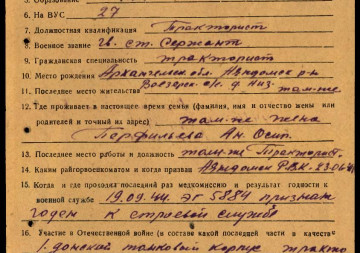 6. На ВУС 27
7. Должностная квалификация Тракторист
8. Военное звание гв. ст. Сержант
9. Гражданская специальность тракторист
10. Место рождения Архангельск. обл. р-н
д. Низ.
11. Последнее место жительства там-же
12. Где проживает в настоящее время семья (фамилия, имя и отчество жены или
родителей и точный их адрес) там-же жена
Перфильева Ан. Осип.
13. Последнее место работы и должность там-же Тракторист.
14. Каким райгорвоенкоматом и когда призван РВК. 23.06.41
15. Когда и где проходил последний раз медкомиссию и результат годности к
военной службе 19.09.44 ЭГ 5884 признан
годен к строевой службе
16. Участие в Отечественной войне (в составе какой последней части в качестве
1. донской танковый корпус тракто